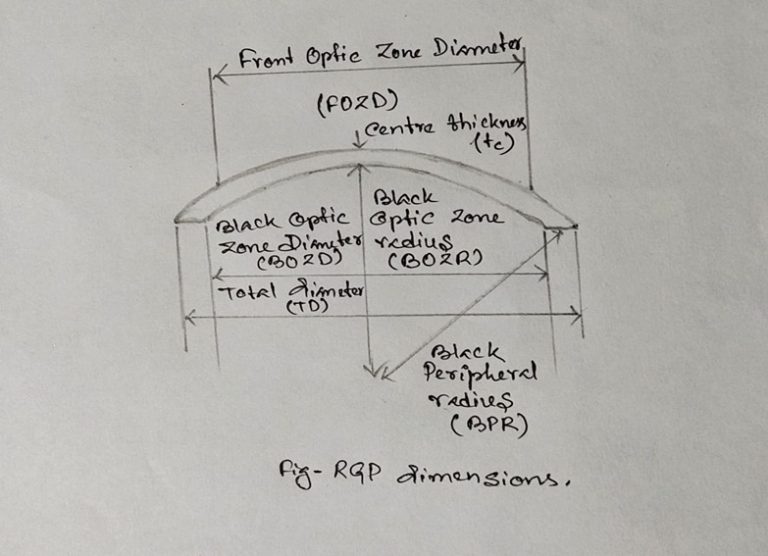 Front Optic Zone Diameter
(FOZD)
Centre thickness
(tc)
Black
Optic Zone
radius
(BOZR)
Black Optic
Zone Diameter
(BOZD)
Total diameter
(TD)
Black
Peripheral
radius
(BPR)
Fig- RGP dimensions.